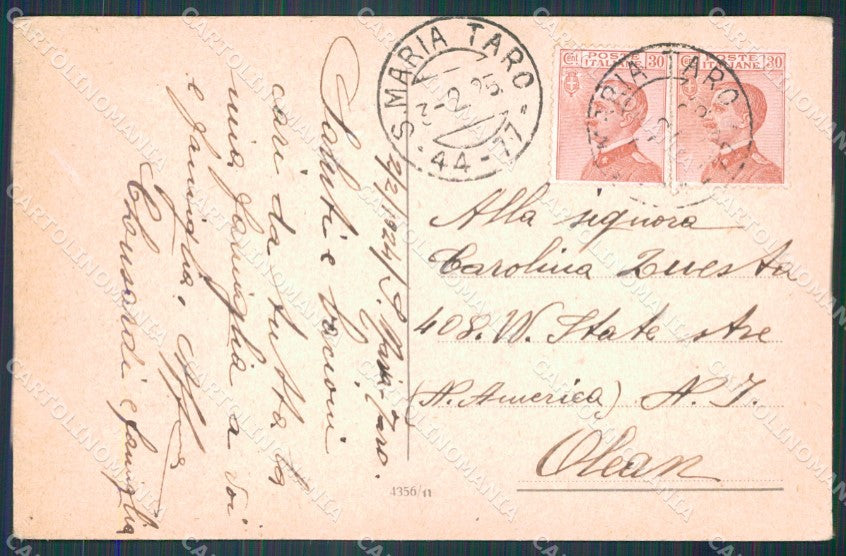 S. MARIA TARO
3-2 25
-44-77-
CENT. 30
POSTE ITALIANE
CENT. 30
POSTE ITALIANE
MARIA TARO
2/2/1924/S. Maria-Taro.
Saluti e bacioni
cari da tutta la
mia famiglia a voi
e famiglia. Aff.
e famiglia
Alla signora
Carolina Zuesta
408. W. State stre
(N. America) N. J.
Olean
4356/11
CARTOLINOMANIA